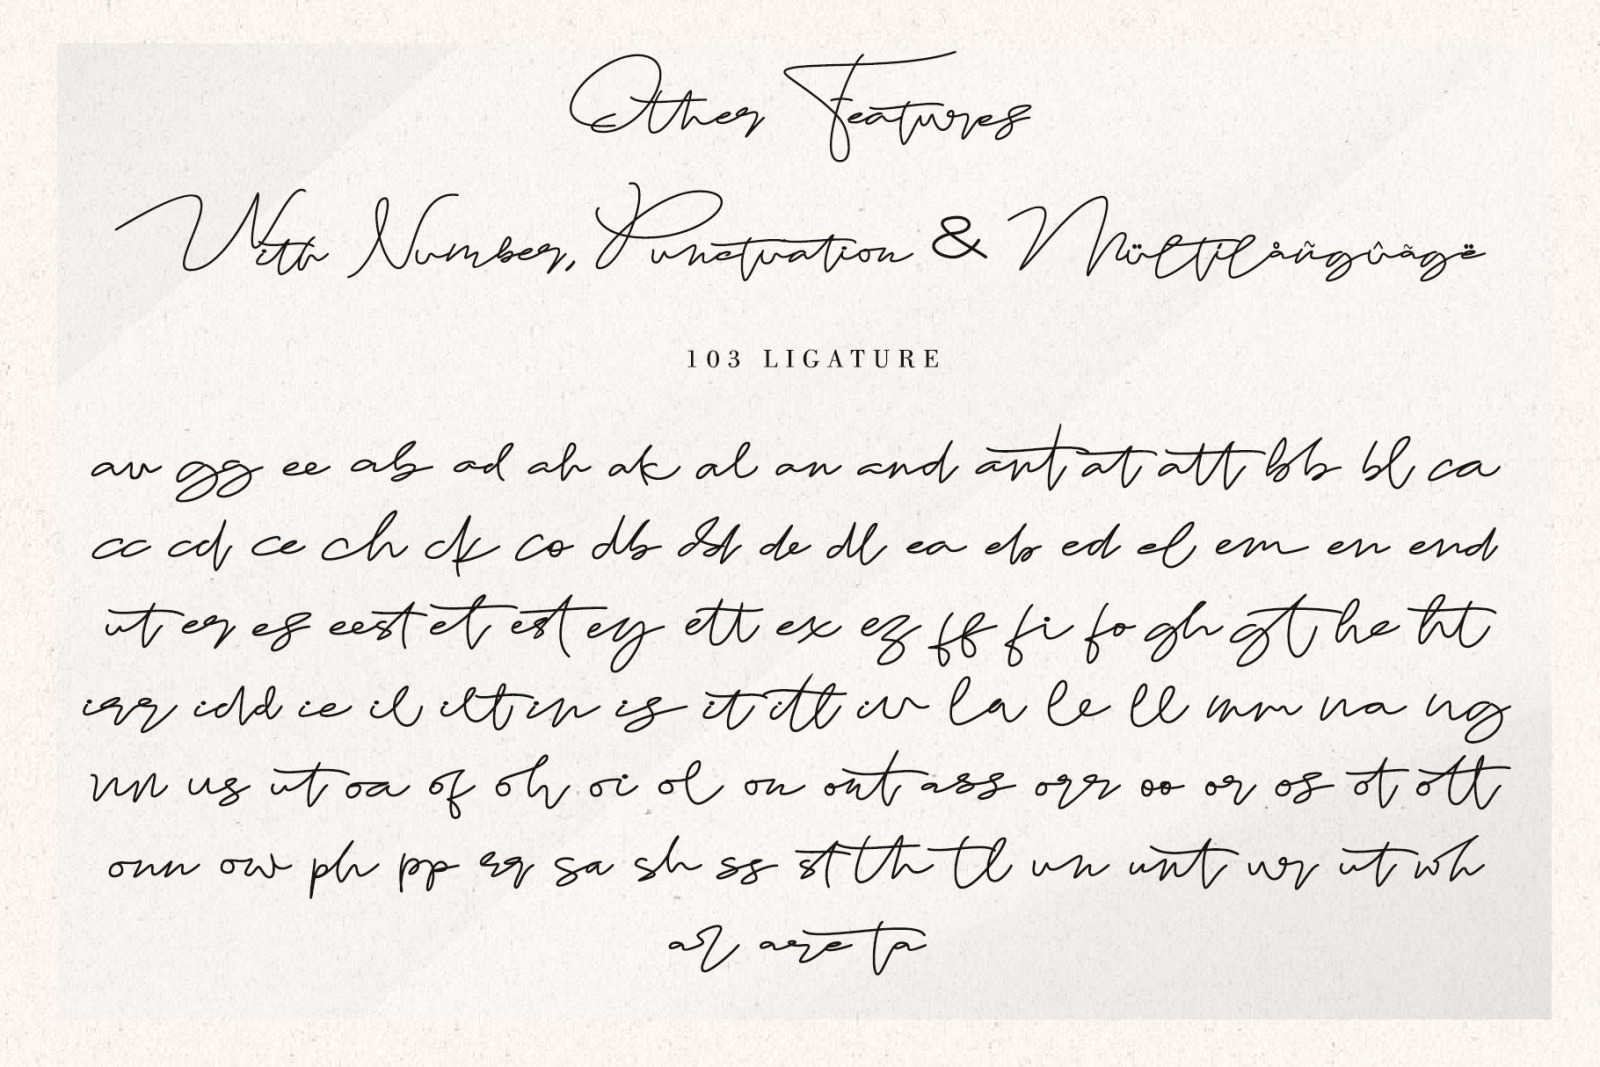 Other Features
With Number, Punctuation & Mültilåñgûãgë
103 LIGATURE
au gg ee ab ad ah ak al an and ant at att bb bl ca
cc cd ce ch ck co db dd de dl ea eb ed el em en end
ut er es eest et est ey ett ex ez ff fi fo gh gt he ht
irr idd ie il ilt in is it itt iv la le ll mm na ng
nn us ut oa of oh oi ol on ont ass orr oo or os ot ott
onn ow ph pp rr sa sh ss st th tl un unt ur ut wh
ar are ta